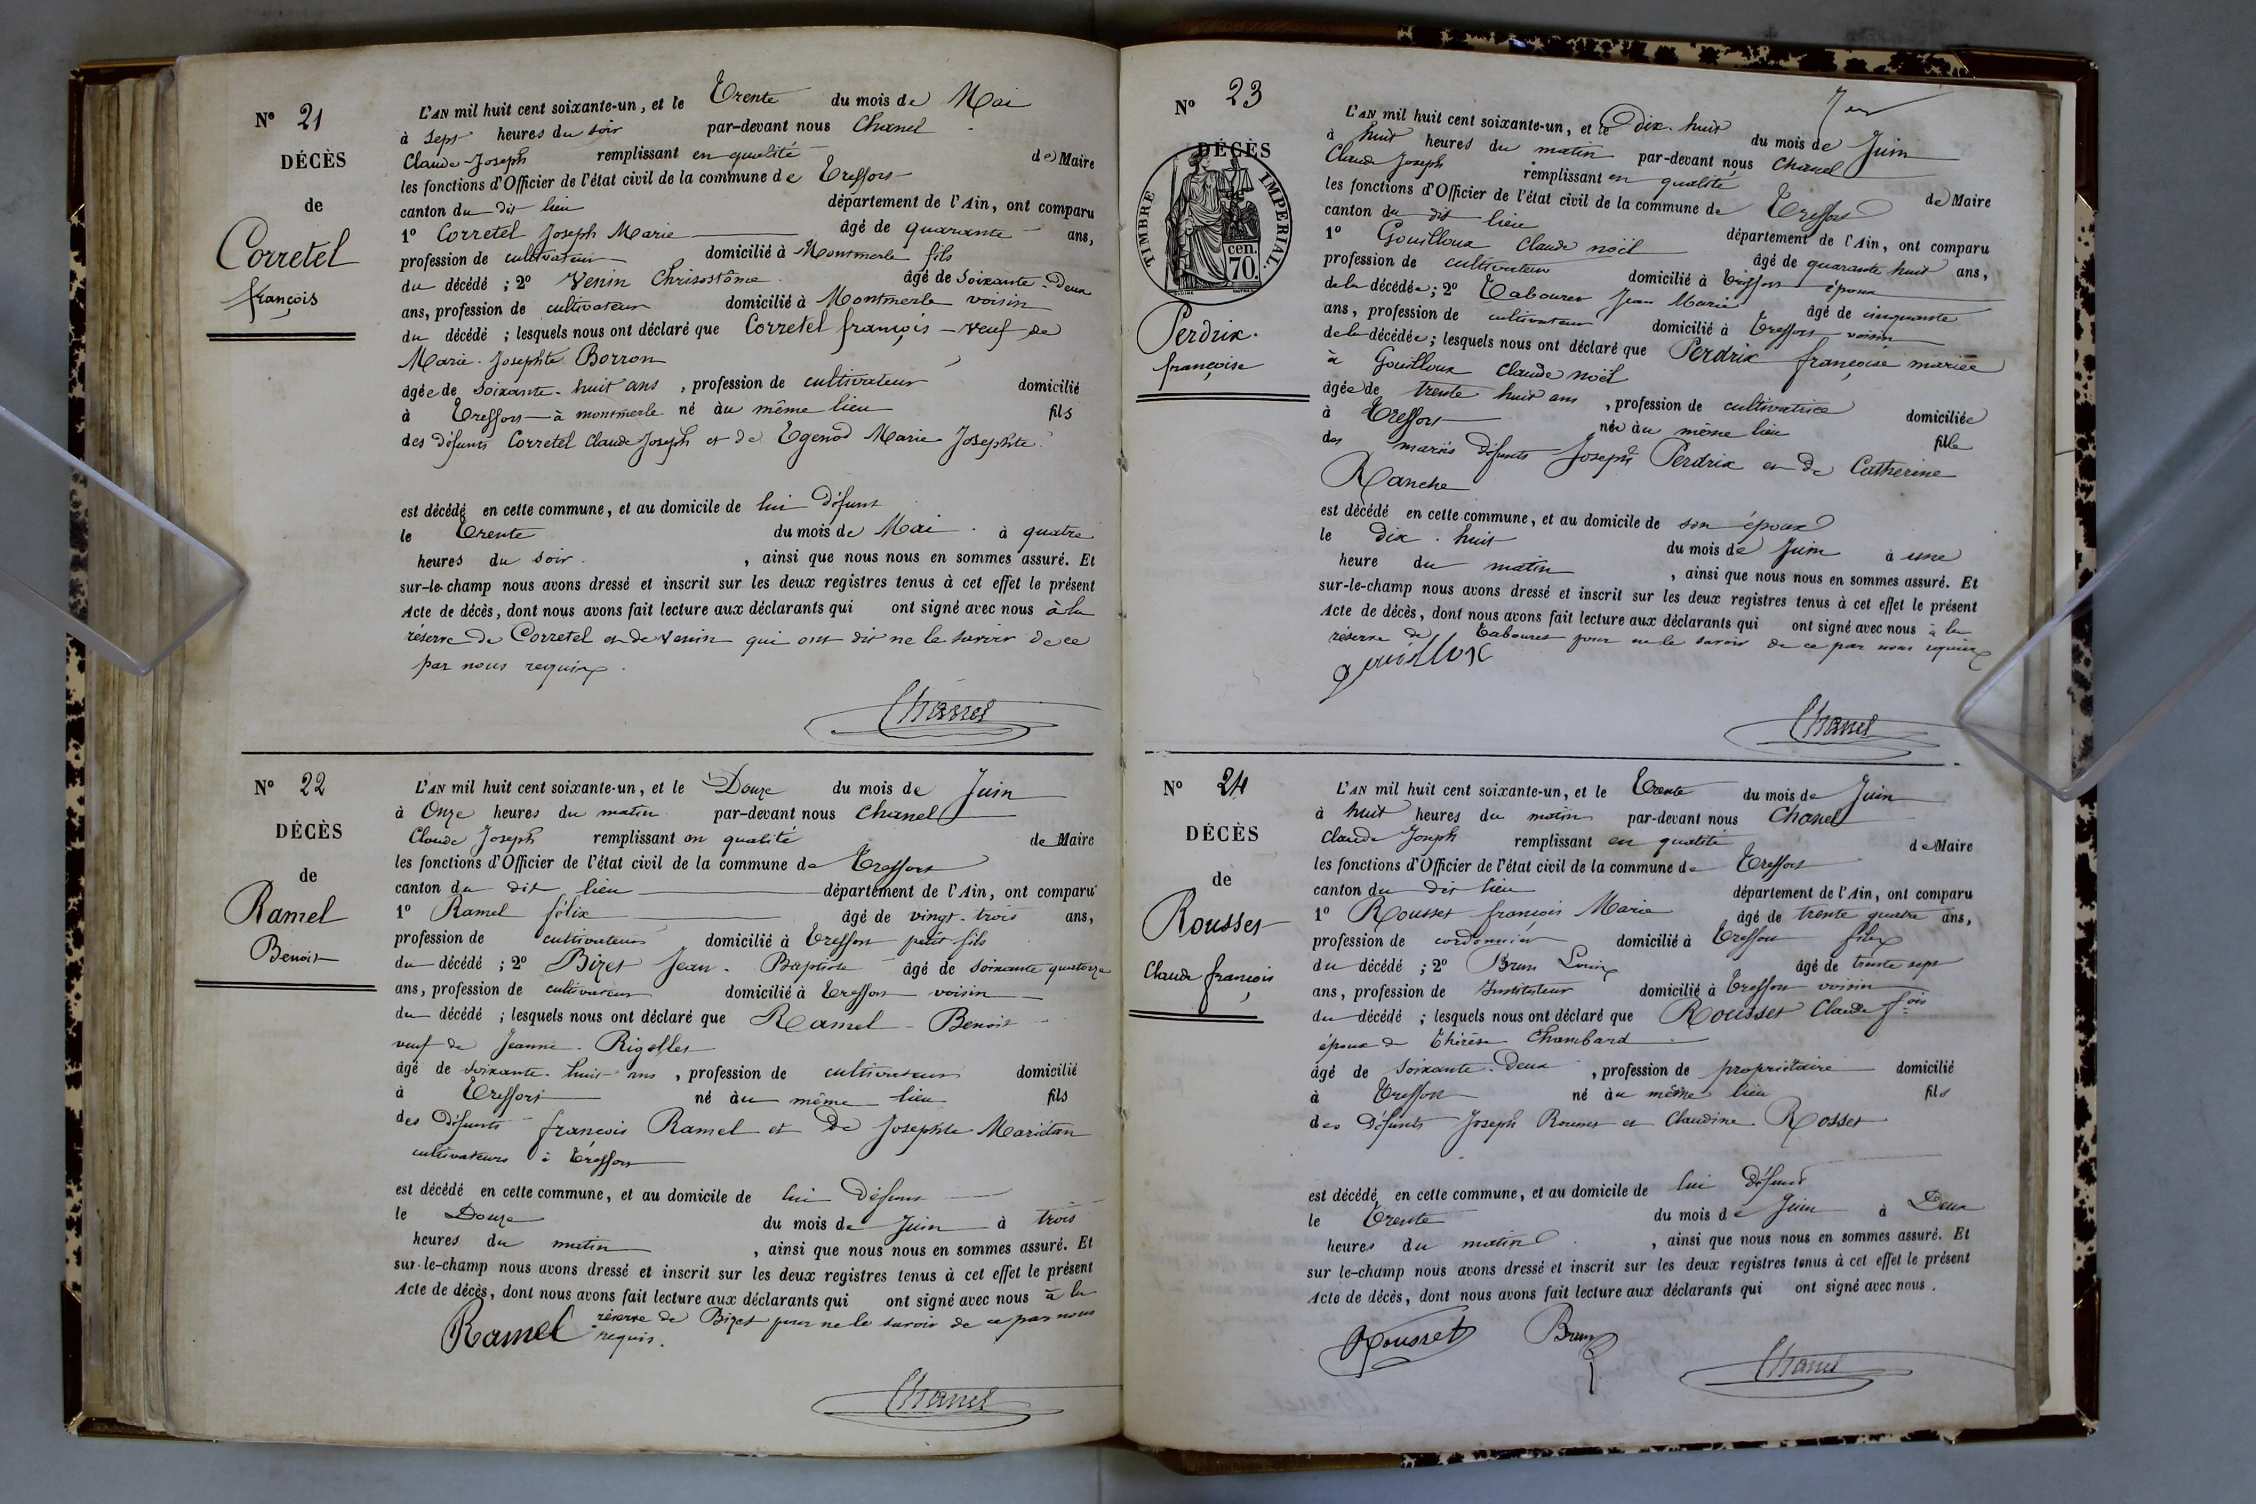 Nº 21
DÉCÈS
de
Corretel
françois
L'AN mil huit cent soixante-un, et le Trente du mois de Mai
à sept heures du soir par-devant nous Chanel
Claude Joseph remplissant en qualité de Maire
les fonctions d'Officier de l'état civil de la commune de Treffort
canton du dit lieu département de l'Ain, ont comparu
1º Corretel Joseph Marie âgé de quarante ans,
profession de cultivateur domicilié à Montmerle fils
du décédé ; 2º Venin Chrisostôme âgé de soixante-Deux
ans, profession de cultivateur domicilié à Montmerle voisin
du décédé ; lesquels nous ont déclaré que Corretel françois veuf de
Marie-Josephte Borron
âgée de soixante-huit ans, profession de cultivateur domicilié
à Treffort à montmerle né àu même lieu fils
des défunts Corretel Claude Joseph et de Egenod Marie Josephte
est décédé en cette commune, et au domicile de lui défunt
le Trente du mois de Mai à quatre
heures du soir, ainsi que nous nous en sommes assuré. Et
sur-le-champ nous avons dressé et inscrit sur les deux registres tenus à cet effet le présent
Acte de décès, dont nous avons fait lecture aux déclarants qui ont signé avec nous à la
réserve de Corretel et de Venin qui ont dit ne le savoir de ce
par nous requis.
Chanel
Nº 22
DÉCÈS
de
Ramel
Benoit
L'AN mil huit cent soixante-un, et le Douze du mois de Juin
à Onze heures du matin par-devant nous Chanel
Claude Joseph remplissant en qualité de Maire
les fonctions d'Officier de l'état civil de la commune de Treffort
canton du dit lieu département de l'Ain, ont comparu
1º Ramel félix âgé de vingt-trois ans,
profession de cultivateur domicilié à Treffort petit fils
du décédé ; 2º Bizet Jean-Baptiste âgé de soixante quatorze
ans, profession de cultivateur domicilié à Treffort voisin
du décédé ; lesquels nous ont déclaré que Ramel Benoit
veuf de Jeanne-Rigollet
âgé de soixante-huit ans, profession de cultivateur domicilié
à Treffort né àu même lieu fils
des défunts francois Ramel et De Josephte Mariétan
cultivateurs à Tréffort
est décédé en cette commune, et au domicile de lui Défunt
le Douze du mois de Juin à trois
heures du matin, ainsi que nous nous en sommes assuré. Et
sur-le-champ nous avons dressé et inscrit sur les deux registres tenus à cet effet le présent
Acte de décès, dont nous avons fait lecture aux déclarants qui ont signé avec nous à la
réserve de Bizet pour ne le savoir de ce par nous
Ramel requis.
Chanel
Nº 23
DÉCÈS
TIMBRE IMPÉRIAL.
70 cen.
Perdrix.
françoise
L'AN mil huit cent soixante-un, et le Dix-huit du mois de Juin
à huit heures du matin par-devant nous Chanel
Claude Joseph remplissant en qualité de Maire
les fonctions d'Officier de l'état civil de la commune de Treffort
canton du dit lieu département de l'Ain, ont comparu
1º Gouilloux Claude noël âgé de quarante huit ans,
profession de cultivateur domicilié à Treffort époux
de la décédée ; 2º Tabouret Jean Marie âgé de cinquante
ans, profession de cultivateur domicilié à Treffort voisin
de la décédée ; lesquels nous ont déclaré que Perdrix françoise mariée
à Gouilloux Claude noël
âgée de trente huit ans, profession de cultivatrice domiciliée
à Treffort née àu même lieu fille
des mariés défunts Joseph Perdrix et de Catherine
Ranche
est décédé en cette commune, et au domicile de son époux
le Dix-huit du mois de Juin à une
heure du matin, ainsi que nous nous en sommes assuré. Et
sur-le-champ nous avons dressé et inscrit sur les deux registres tenus à cet effet le présent
Acte de décès, dont nous avons fait lecture aux déclarants qui ont signé avec nous à la
réserve de Tabouret pour ne le savoir de ce par nous requis
gouilloux
Chanel
Nº 24
DÉCÈS
de
Rousset
Claude françois
L'AN mil huit cent soixante-un, et le Trente du mois de Juin
à huit heures du matin par-devant nous Chanel
Claude Joseph remplissant en qualité de Maire
les fonctions d'Officier de l'état civil de la commune de Treffort
canton du dit lieu département de l'Ain, ont comparu
1º Rousset françois Marie âgé de trente quatre ans,
profession de cordonnier domicilié à Treffort fils
du décédé ; 2º Brun Louis âgé de trente sept
ans, profession de Instituteur domicilié à Treffort voisin
du décédé ; lesquels nous ont déclaré que Rousset Claude fois
époux de Thérèse Chambard
âgé de soixante-Deux, profession de propriétaire domicilié
à Treffort né àu même lieu fils
des Défunts Joseph Rousset et Claudine Rosset
est décédé en cette commune, et au domicile de lui défunt
le Trente du mois de Juin à Deux
heures du matin, ainsi que nous nous en sommes assuré. Et
sur le-champ nous avons dressé et inscrit sur les deux registres tenus à cet effet le présent
Acte de décès, dont nous avons fait lecture aux déclarants qui ont signé avec nous.
Rousset Brun
Chanel